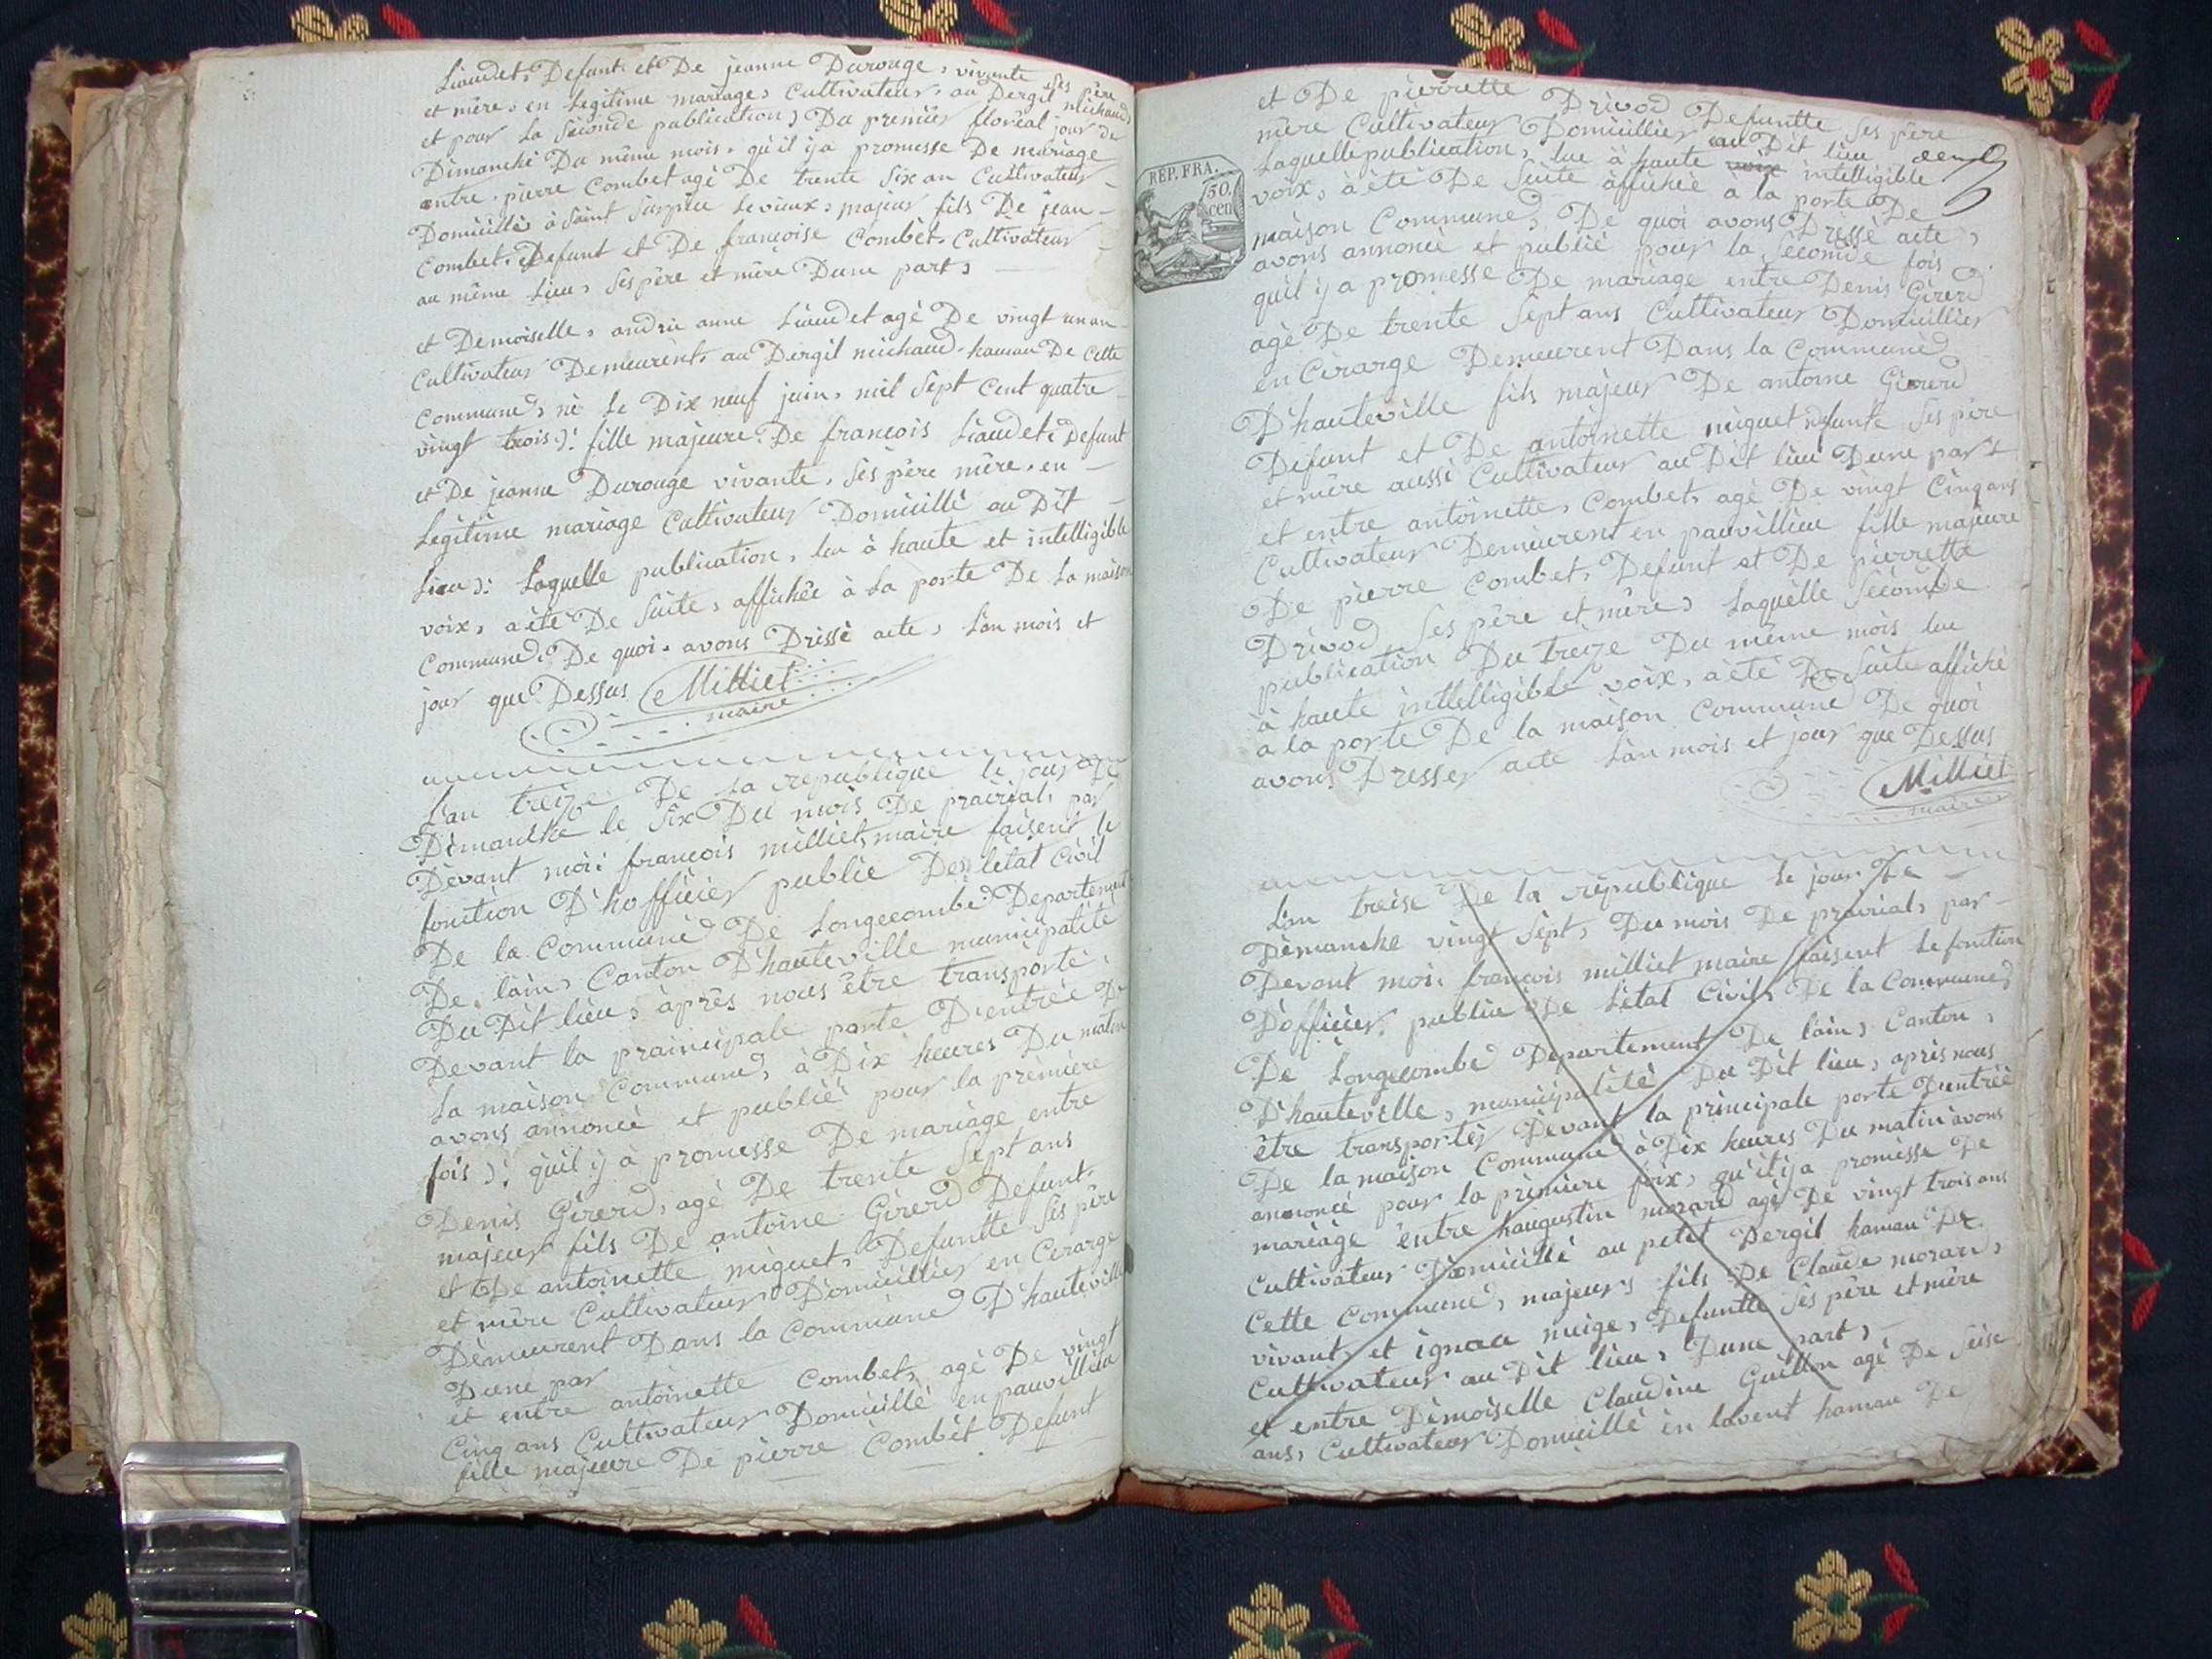 Liaudet, Defunt et De jeanne Durouge, vivante ses père
et mère, en Legitime mariage, Cultivateur, au Dergil michaud
et pour La séconde publication, Du premier floréal jour de
Dimanche Du même mois, qu'il ÿ a promesse De mariage
entre pierre Combet agé De trente six an Cultivateur
Domicillié à Saint Surpice Le vieux, majeur fils De jean
Combet, Defunt et De françoise Combet, Cultivateur
au même Lieu, Ses père et mère Dune part,
et Demoiselle, andrié anne Liaudet agé De vingt un an
Cultivateur Demeurent, au Dergil michaud, hamau De Cette
Commune, né Le Dix neuf juin, mil Sept Cent quatre
vingt trois: fille majeure De francois Liaudet, Defunt
et De jeanne Durouge vivante, Ses père mère, en
Legitime mariage Cultivateur Domicillé au Dit
Lieu: Laquelle publication, lu à haute et intelligible
voix, a été De Suite, affichée à La porte De La maison
Commune, De quoi avons Dréssé acte, L'an mois et
jour que Dessus Milliet
maire
L'an treize De La république le jour De
Dimanche le Six Du mois De prairial, par
Dévant moi: francois milliet, maire faisent le
fonction D'hofficier publie De létat Civil
De la Commune De Longecombe Departement
De lain, Canton D'hauteville municipalité
Du Dit lieu, àprès nous être transporté,
Dévant la prainçipale porte D'entrée De
La maison Commune, à Dix heures Du matin
avons annoncé et publiéé pour la première
fois: qu'il ÿ à promesse De mariage entre
Denis Girerd, agé De trente Sept ans
majeur fils De antoine Girerd Defunt,
et De antoinette miguet, Defuntte Ses père
et mère Cultivateur Domicillier en Cirarge
Démeurent Dans la Commune D'hauteville
Dune par
et entre antoinette Combet, agé De vingt
Cinq ans Cultivateur Domicillé en pauvillieu
fille majeure De pièrre Combét Defunt
et De pièrrette Drivod Defuntte Ses père
mère Cultivateur Domicillier au Dit lieu
Laquelle publication, lue à haute voix intelligible
voix, à été De Suite affichée a la porte De
maison Commune, De quoi avons Dréssé acte,
avons annoncé et publié pour la séconde fois
qu'il ÿ a promesse De mariage entre Denis Girerd
agé De trente Sept ans Cultivateur Domicillier
en Cirarge Demeurent Dans la Commune
D'hauteville fils majeur De antoine Girerd
Difunt et De antoinette miguet défunte Ses père
et mère aussi Cultivateur au Dit lieu Dune part
et entre antoinette, Combet, agé De vingt Cinq ans
Cultivateur Demeurent en pauvillieu fille majeure
De pièrre Combet, Defunt et De pierrette
Drivod Ses père et mère, Laquélle Séconde
publication Du treize Du même mois lue
à haute intelligible voix, à été De Suite affiché
a la porte De la maison Commune De quoi
avons Dresser acte L'an mois et jour que Dessus
Milliet
maire
L'an treise De la république le jour De
Démanche vingt Sépt, Du mois De prairial, par
Devant moi: francois milliet maire faisent Le fonction
D'officier, publie De L'état Civil, De la Commune
De Longecombe Departement De lain, Canton,
D'hauteville, municipalité Du Dit lieu, après nous
être transporter Dévant la prinçipale porte D'entréé
De la maison Commune à Dix heures Du matin àvons
annoncé pour la prémiere foix, qu'il ÿ a promésse De
mariàge entre haugustin morard agé De vingt trois ans
Cultivateur Domicillé au petit Dergil hamau De
Cette Commune, majeur fils De Claude morard,
vivant, et ignace Defuntte Ses père et mère
Cultivateur au Dit lieu, Dune part,
et entre Démoiselle Claudine Guillon agé De Seise
ans, Cultivateur Domicillé en lavent hamau De
REP. FRA.
50.
cen